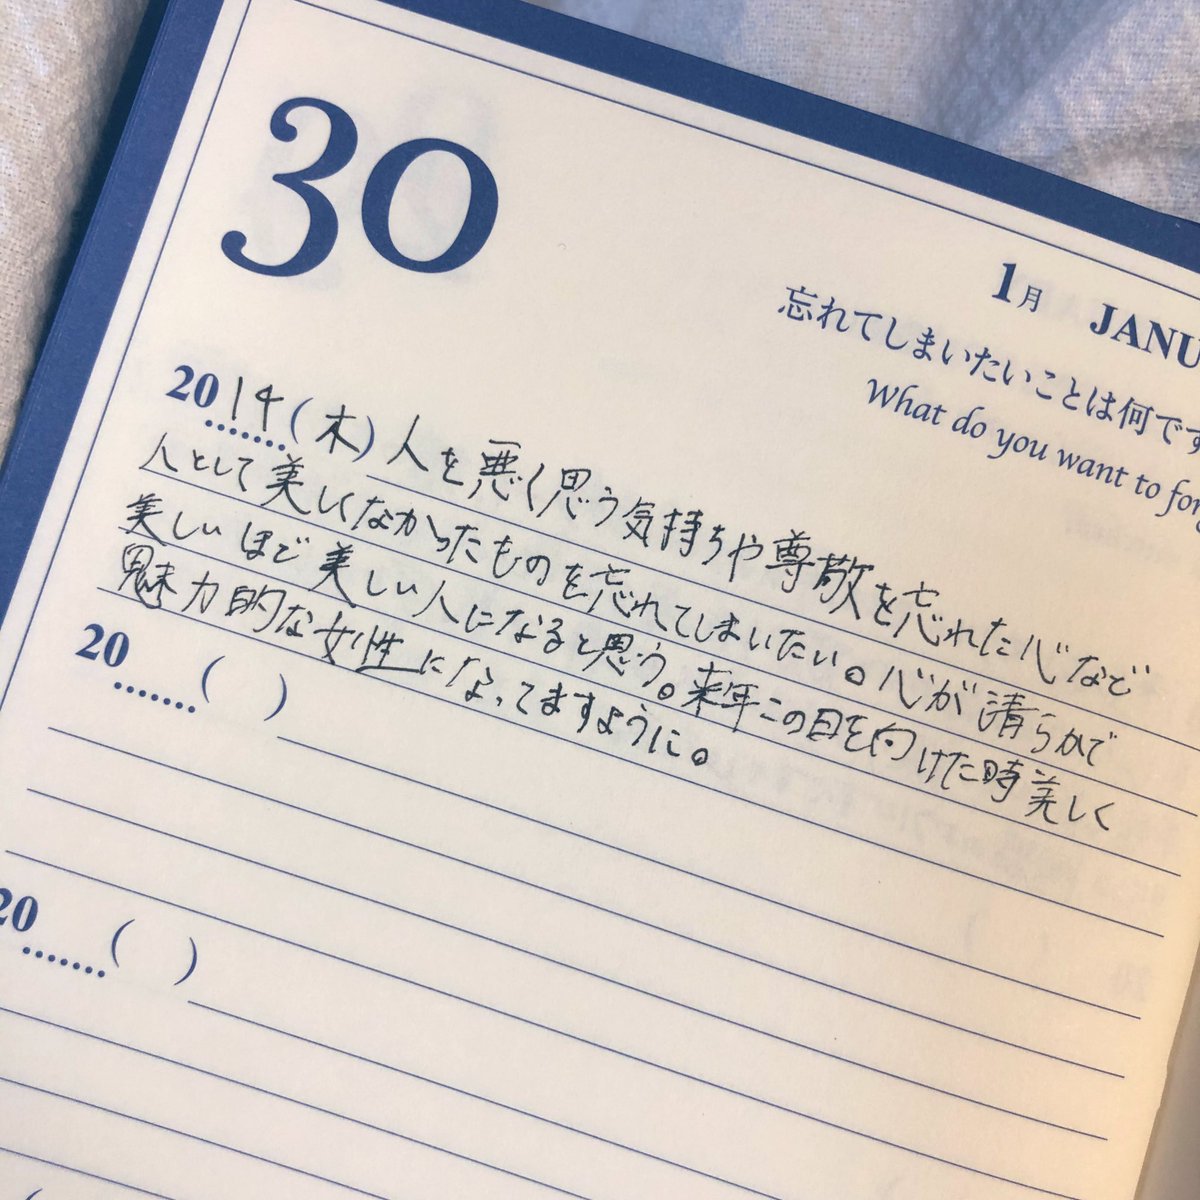 30
1月 JANU
忘れてしまいたいことは何です
What do you want to for
2014(木)人を悪く思う気持ちや尊敬を忘れた心など
人として美しくなかったものを忘れてしまいたい。心が清らかで
美しいほど美しい人になると思う。来年この日を向けた時美しく
魅力的な女性になってますように。
20 ( )
20 ( )